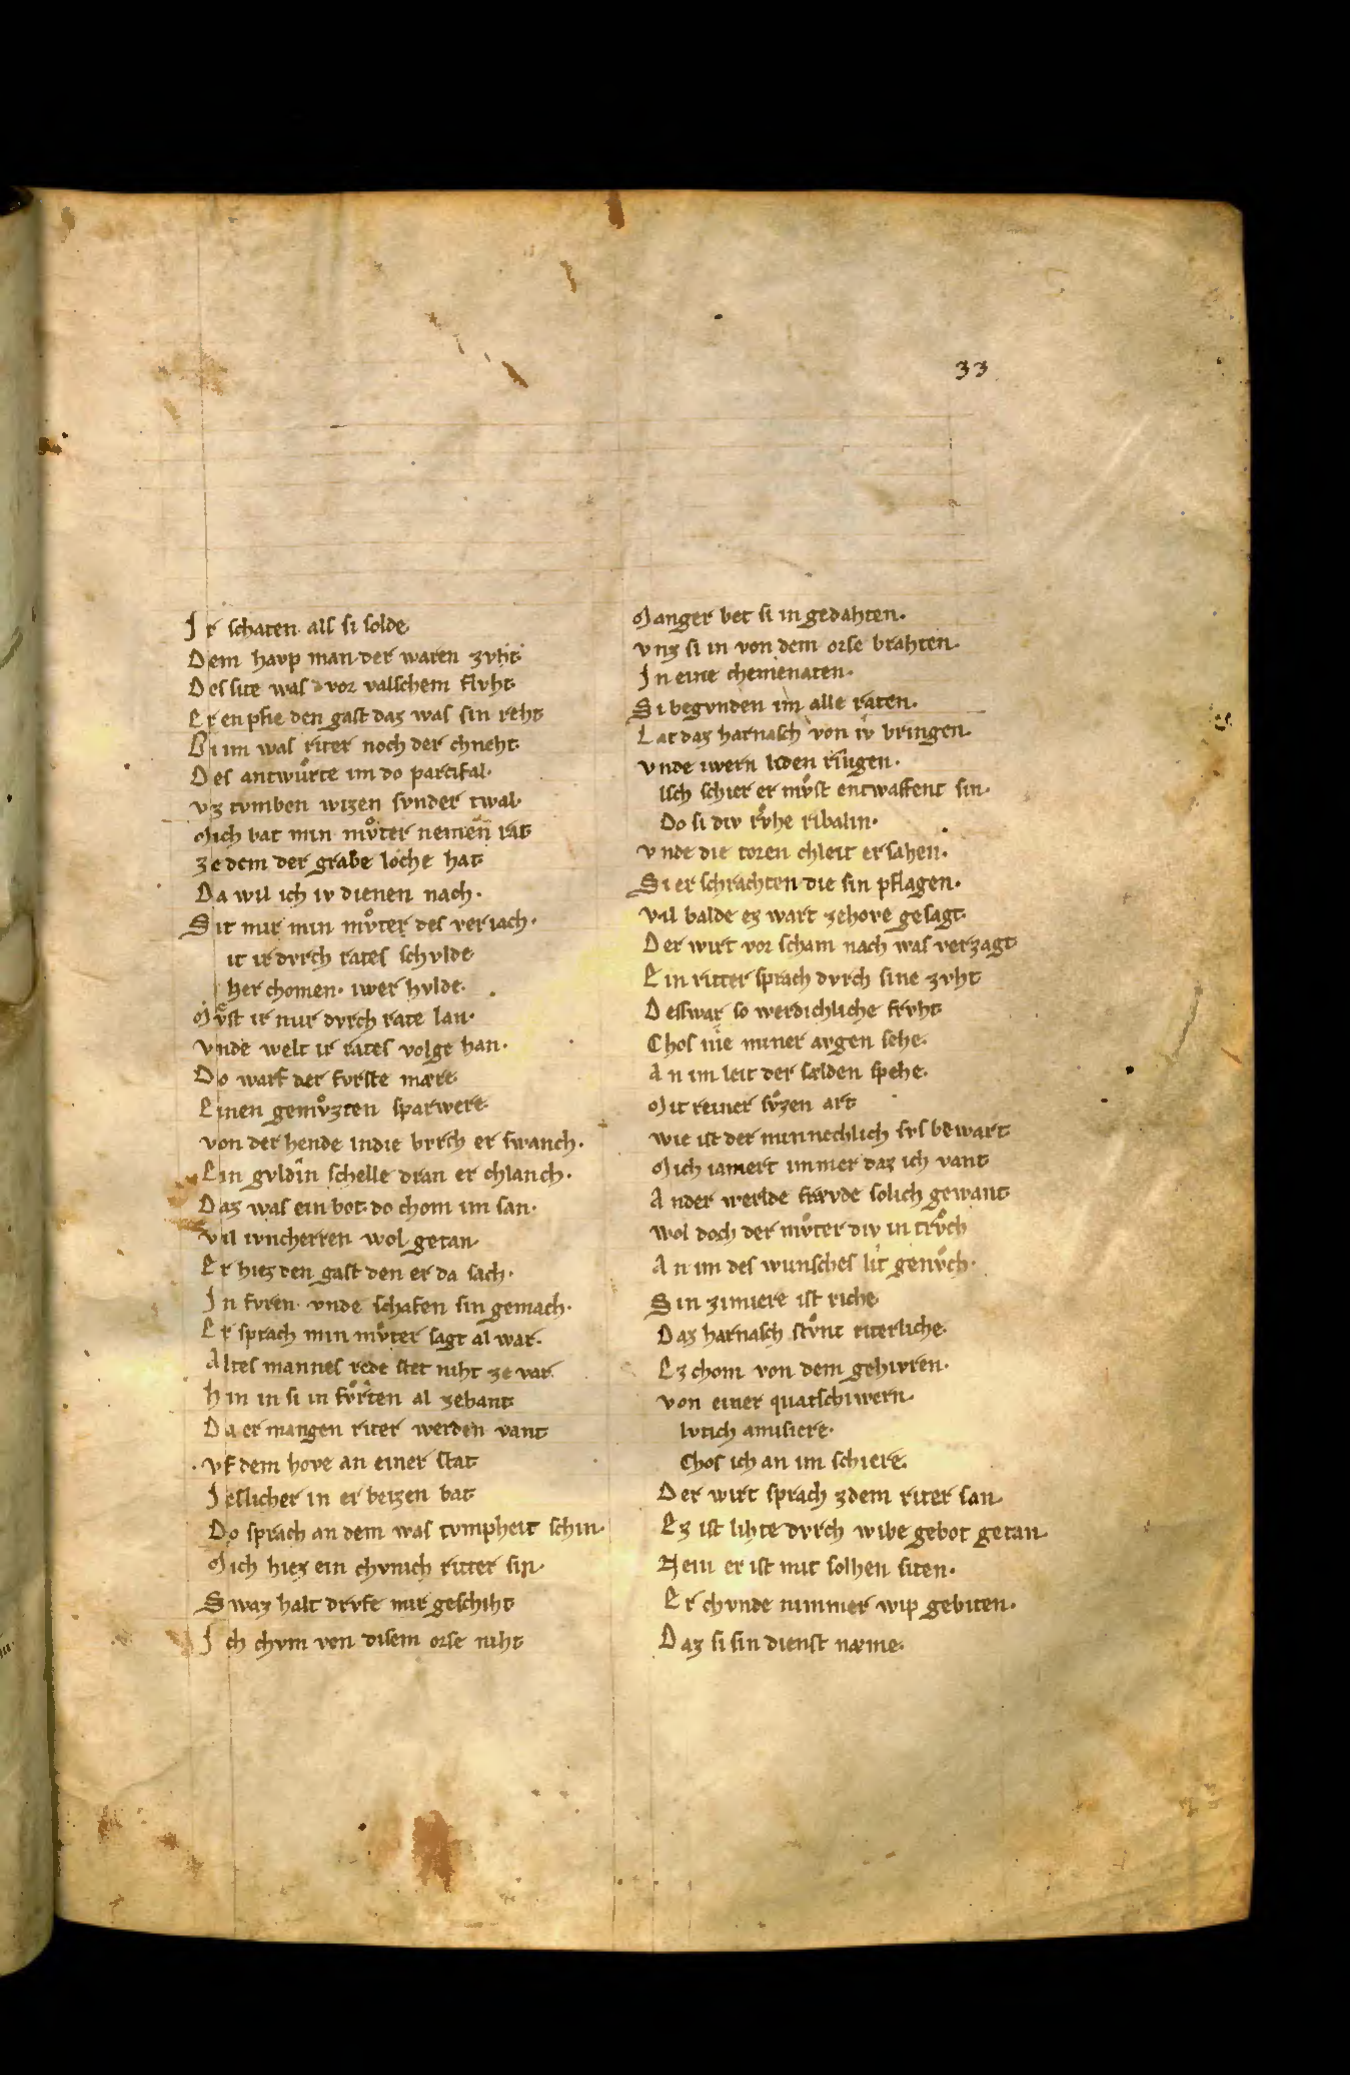 33
Ir schaten als si solde
Dem havp man der waren zvht
Des site was vor valschem flvht
Er enpfie den gast daz was sin reht
Bi im was riter noch der chneht
Des antwůrte im do parcifal·
vz tvmben wizen svnder twal·
Mich bat min mv̊ter nemen rat
ze dem der grabe loche hat
Da wil ich iv dienen nach·
Sit mir min mv̊ter des veriach·
it ir dvrch rates schvlde
her chomen· iwer hvlde·
Mv̊st ir mir dvrch rate lan·
vnde welt ir rates volge han·
Do warf der fvrste mære
Einen gemv̊zten sparwere
von der hende indie bvrch er swanch·
Ein gvldin schelle dran er chlanch·
Daz was ein bot do chom im san·
vil ivncherren wol getan
Er hiez den gast den er da sach·
In fvren vnde schafen sin gemach·
Er sprach min mv̊ter sagt al war·
Altes mannes rede stet niht ze var
hin in si in fv̊rten al zehant
Da er mangen riter werden vant
vf dem hove an einer stat
Ieslicher in er beizen bat
Do sprach an dem was tvmpheit schin·
Mich hiez ein chvnich ritter sin·
Swaz halt drvfe mir geschiht
Ich chvm von disem orse niht
Manger bet si in gedahten·
vnz si in von dem orse brahten
In eine chemenaten·
Si begvnden im alle raten·
Lat daz harnasch von iv bringen
vnde iwern liden ringen·
isch schier er mv̊st entwaffent sin·
Do si div rv̊he ribalin·
vnde die toren chleit ersahen·
Si er schrachten die sin pflagen·
vil balde ez wart zehove gesagt
Der wirt vor scham nach was verzagt
Ein ritter sprach dvrch sine zvht
Deswar so werdichliche frvht
Chos nie miner avgen sehe·
An im leit der sælden spehe·
Mit reiner sv̊zen art
wie ist der minnechlich svs bewart
Mich iamert immer daz ich vant
An der werlde frævde solich gewant
wol doch der mv̊ter div in trv̊ch
An im des wunsches lit genv̊ch·
Sin zimiere ist riche
Daz harnasch stv̊nt riterliche·
Ez chom von dem gehivren·
von einer quatschiwern
lvtich amisiere·
Chos ich an im schiere·
Der wirt sprach zdem riter san
Ez ist lihte dvrch wibe gebot getan·
Nein er ist mit solhen siten·
Er chvnde nimmer wip gebiten·
Daz si sin dienst næme·